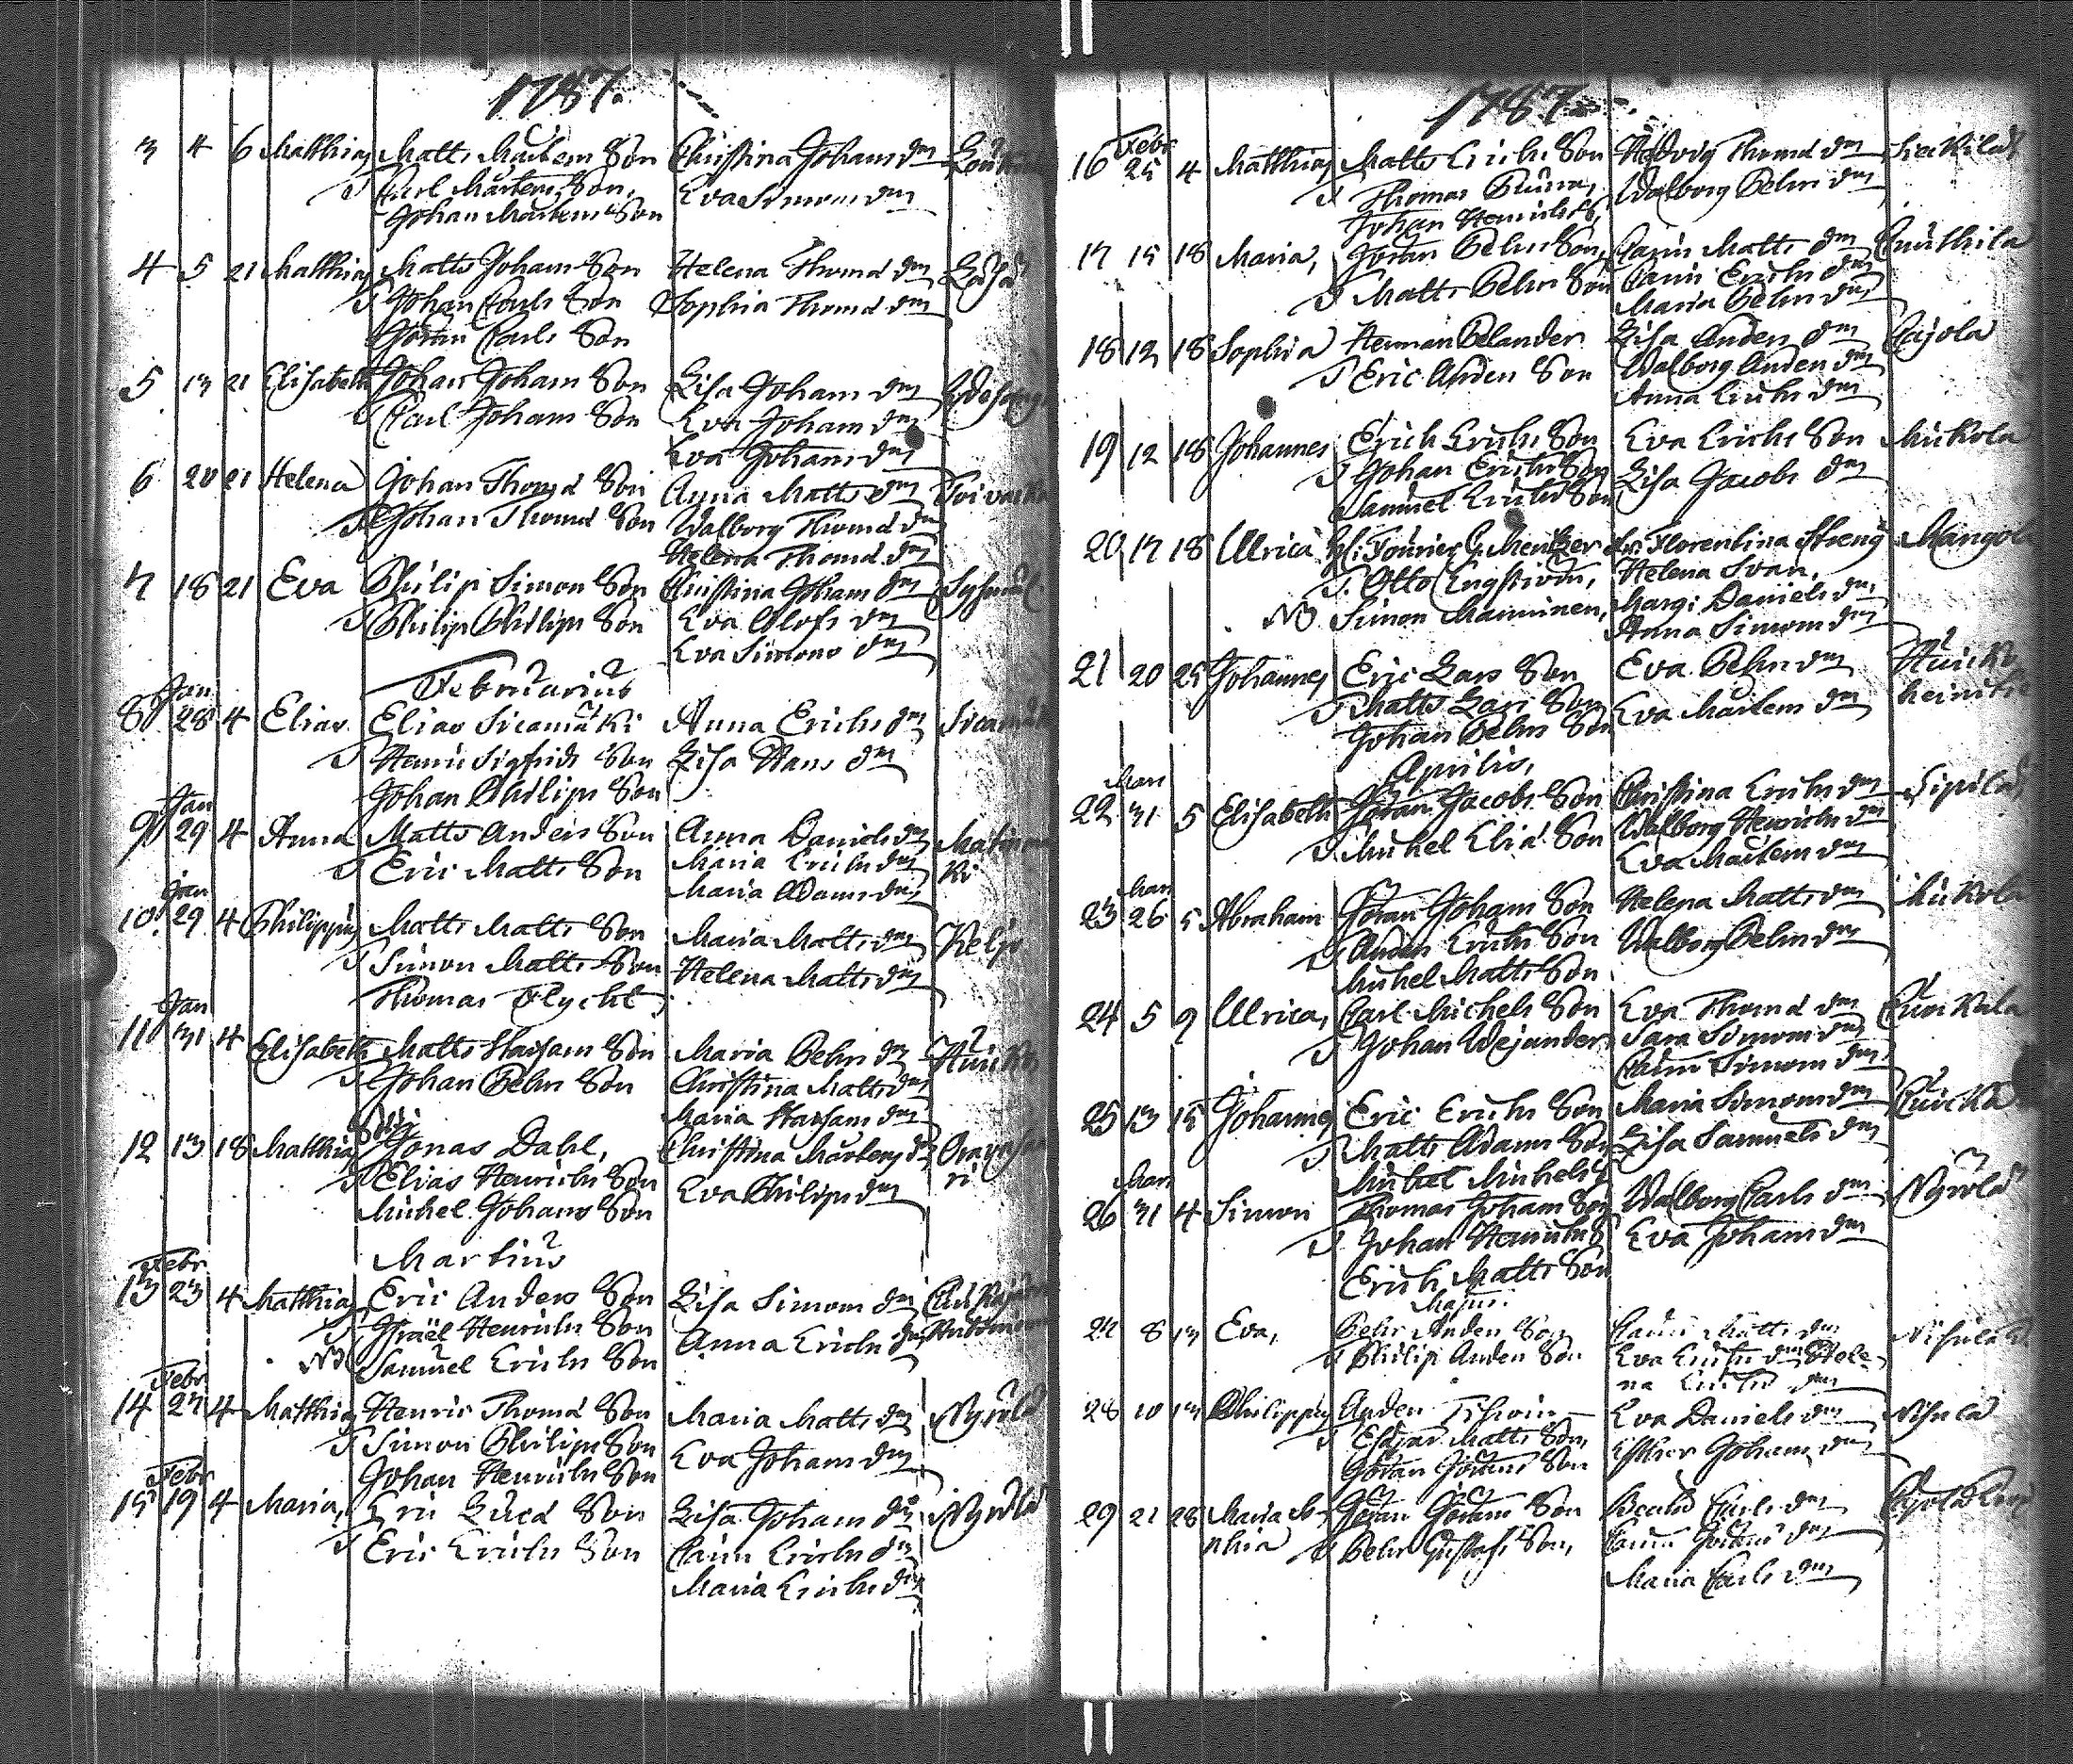 1787.
3 4 6 Matthias Matts Mårtens Son Christina Johans dr
T Carl Mårtens Son, Eva Simons dr
Johan Mårtens Son
4 5 21 Matthias Matts Johans Son Helena Thomæ dr
T Johan Carls Son Sophia Thomæ dr
Göran Carls Son
5 13 21 Elisabeth Johan Johans Son Lisa Johans dr
T Carl Johans Son Eva Johans dr
Eva Johans dr
6 20 21 Helena Johan Thomæ Son Anna Matts dr
T Johan Thomæ Son Walborg Thomæ dr
Helena Thomæ dr
7 18 21 Eva Philip Simons Son Christina Johans dr
T Philip Philips Son Eva Olofs dr
Eva Simons dr
Februarius
Jan
8 28 4 Elias Elias Sicamäki Anna Erichs dr
T Henric Sigfrids Son Lisa Hans dr
Johan Philips Son
Jan
9 29 4 Anna Matts Anders Son Anna Daniels dr
T Eric Matts Son Maria Erichs dr
Maria Adams dr
Jan
10 29 4 Philippus Matts Matts Son Maria Matts dr
T Simon Matts Son Helena Matts dr
Thomas Flycht
Jan
11 31 4 Elisabeth Matts Staffans Son Maria Pehrs dr
T Johan Pehrs Son Christina Matts dr
Maria Staffans dr
12 13 18 Matthias Jonas Dahl, Christina Mårtens dr
T Elias Henrichs Son Eva Philips dr
Michel Johans Son
Martius
Febr
13 23 4 Matthias Eric Anders Son Lisa Simons dr
T Israël Henrichs Son Anna Erichs dr
NB Samuel Erichs Son
Febr
14 27 4 Matthias Henric Thomæ Son Maria Matts dr Nyrölä
T Simon Philips Son Eva Johans dr
Johan Henrichs Son
Febr
15 19 4 Maria, Eric Lucæ Son Lisa Johans dr Nyrölä
T Eric Erichs Son Carin Erichs dr
Maria Erichs dr
1787
Febr
16 25 4 Matthias Matts Erichs Son Hedvig Thomæ dr Heikilä
T Thomas Walborg Pehrs dr
Johan Henrichs S,
17 15 18 Maria, Göran Pehrs Son, Carin Matts dr
T Matts Pehrs Son Carin Erichs dr
Maria Pehrs dr
18 12 18 Sophia Herman Pelander Lisa Anders dr
T Eric Anders Son Walborg Anders dr
Anna Erichs dr
19 12 18 Johannes Erich Erichs Son Eva Erichs Son Mickola
T Johan Erichs Son Lisa Jacobs dr
Samuel Erichs Son
20 17 18 Ulrica H: Fourier G. Mentzer Fr: Florentina Streng
T. Otto Engström, Helena Svan,
NB Simon Manninen, Marg: Daniels dr
Anna Simons dr
21 20 25 Johannes Eric Lars Son Eva Pehrs dr
T Matts Lars Son Eva Mårtens dr
Johan Pehrs Son
Aprilis,
Mars
22 31 5 Elisabeth Göran Jacobs Son Christina Erichs dr Sipilä
T Michel Eliæ Son Walborg Henrichs dr
Eva Mårtens dr
Mars
23 26 5 Abraham Göran Johans Son Helena Matts dr Mickola
T Anders Erichs Son Walborg Pehrs dr
Michel Matts Son
24 5 9 Ulrica, Carl Michels Son Eva Thomæ dr
T Johan Wejander Sara Simons dr
Carin Simons dr
25 13 15 Johannes Eric Erichs Son Maria Simons dr
T Matts Adams Son Lisa Samuels dr
Michel Michels S
Mars
26 31 4 Simon Thomas Johans Son Walborg Carls dr Nyrölä
T Johan Henrichs S Eva Johans dr
Erich Matts Son
Majus.
27 8 13 Eva, Pehr Anders Son Carin Matts dr
T Philip Anders Son Eva Erichs dr Hele-
na Erichs dr
28 10 13 Philippus Anders Eva Daniels dr Nisula
T Esaias Matts Son, Esther Johans dr
Göran Görans Son
29 21 28 Maria So- Göran Görans Son Beata Carls dr
phia T Pehr Gustafs Son, Carin Görans dr
Maria Carls dr